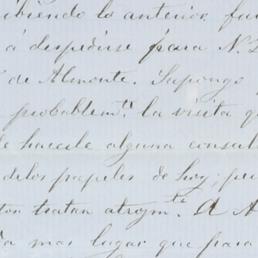 ibiendo lo anterior, fu
á despedirse para N.
de Almonte. Supongo
probablemte. la visita q
le hacerle alguna consul
delos papeles de hoy; pe
tos tratan atrozmte. A A
a mas lugar que para